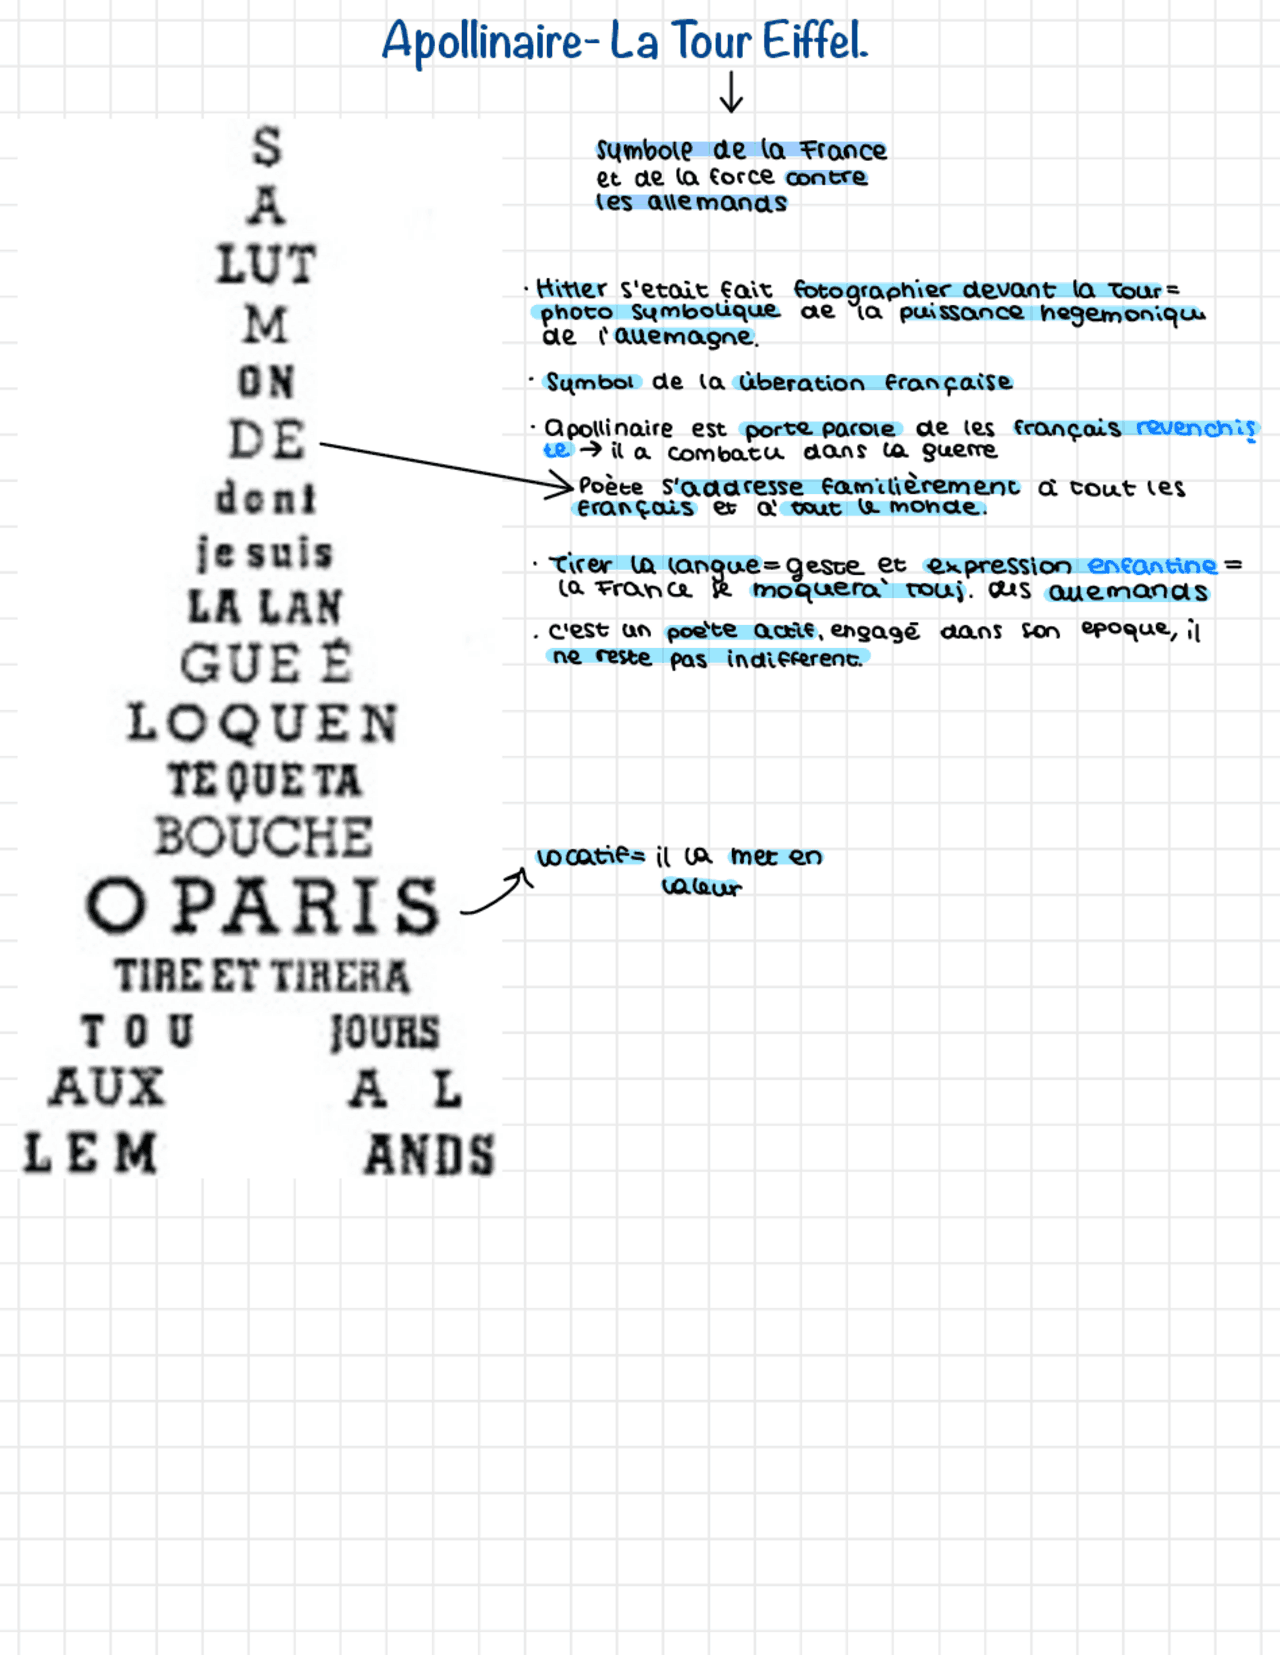 Apollinaire- La Tour Eiffel.
S
A
LUT
M
ON
DE
dont
je suis
LA LAN
GUE É
LOQUEN
TE QUE TA
BOUCHE
O PARIS
TIRE ET TIRERA
TOU JOURS
AUX A L
LEM ANDS
symbole de la France
et de la force contre
les allemands
· Hitler s'etait fait fotographier devant la Tour =
photo symbolique de la puissance hegemoniqu
de l'allemagne.
· Symbol de la liberation française
· Apollinaire est porte parole de les français revenchis
te → il a combatu dans la guerre
Poète s'addresse familièrement à tout les
français et à tout le monde.
· Tirer la langue = geste et expression enfantine =
la France se moquera touj. des allemands
. c'est un poète actif, engagé dans son epoque, il
ne reste pas indifferent.
vocatif = il la met en
valeur